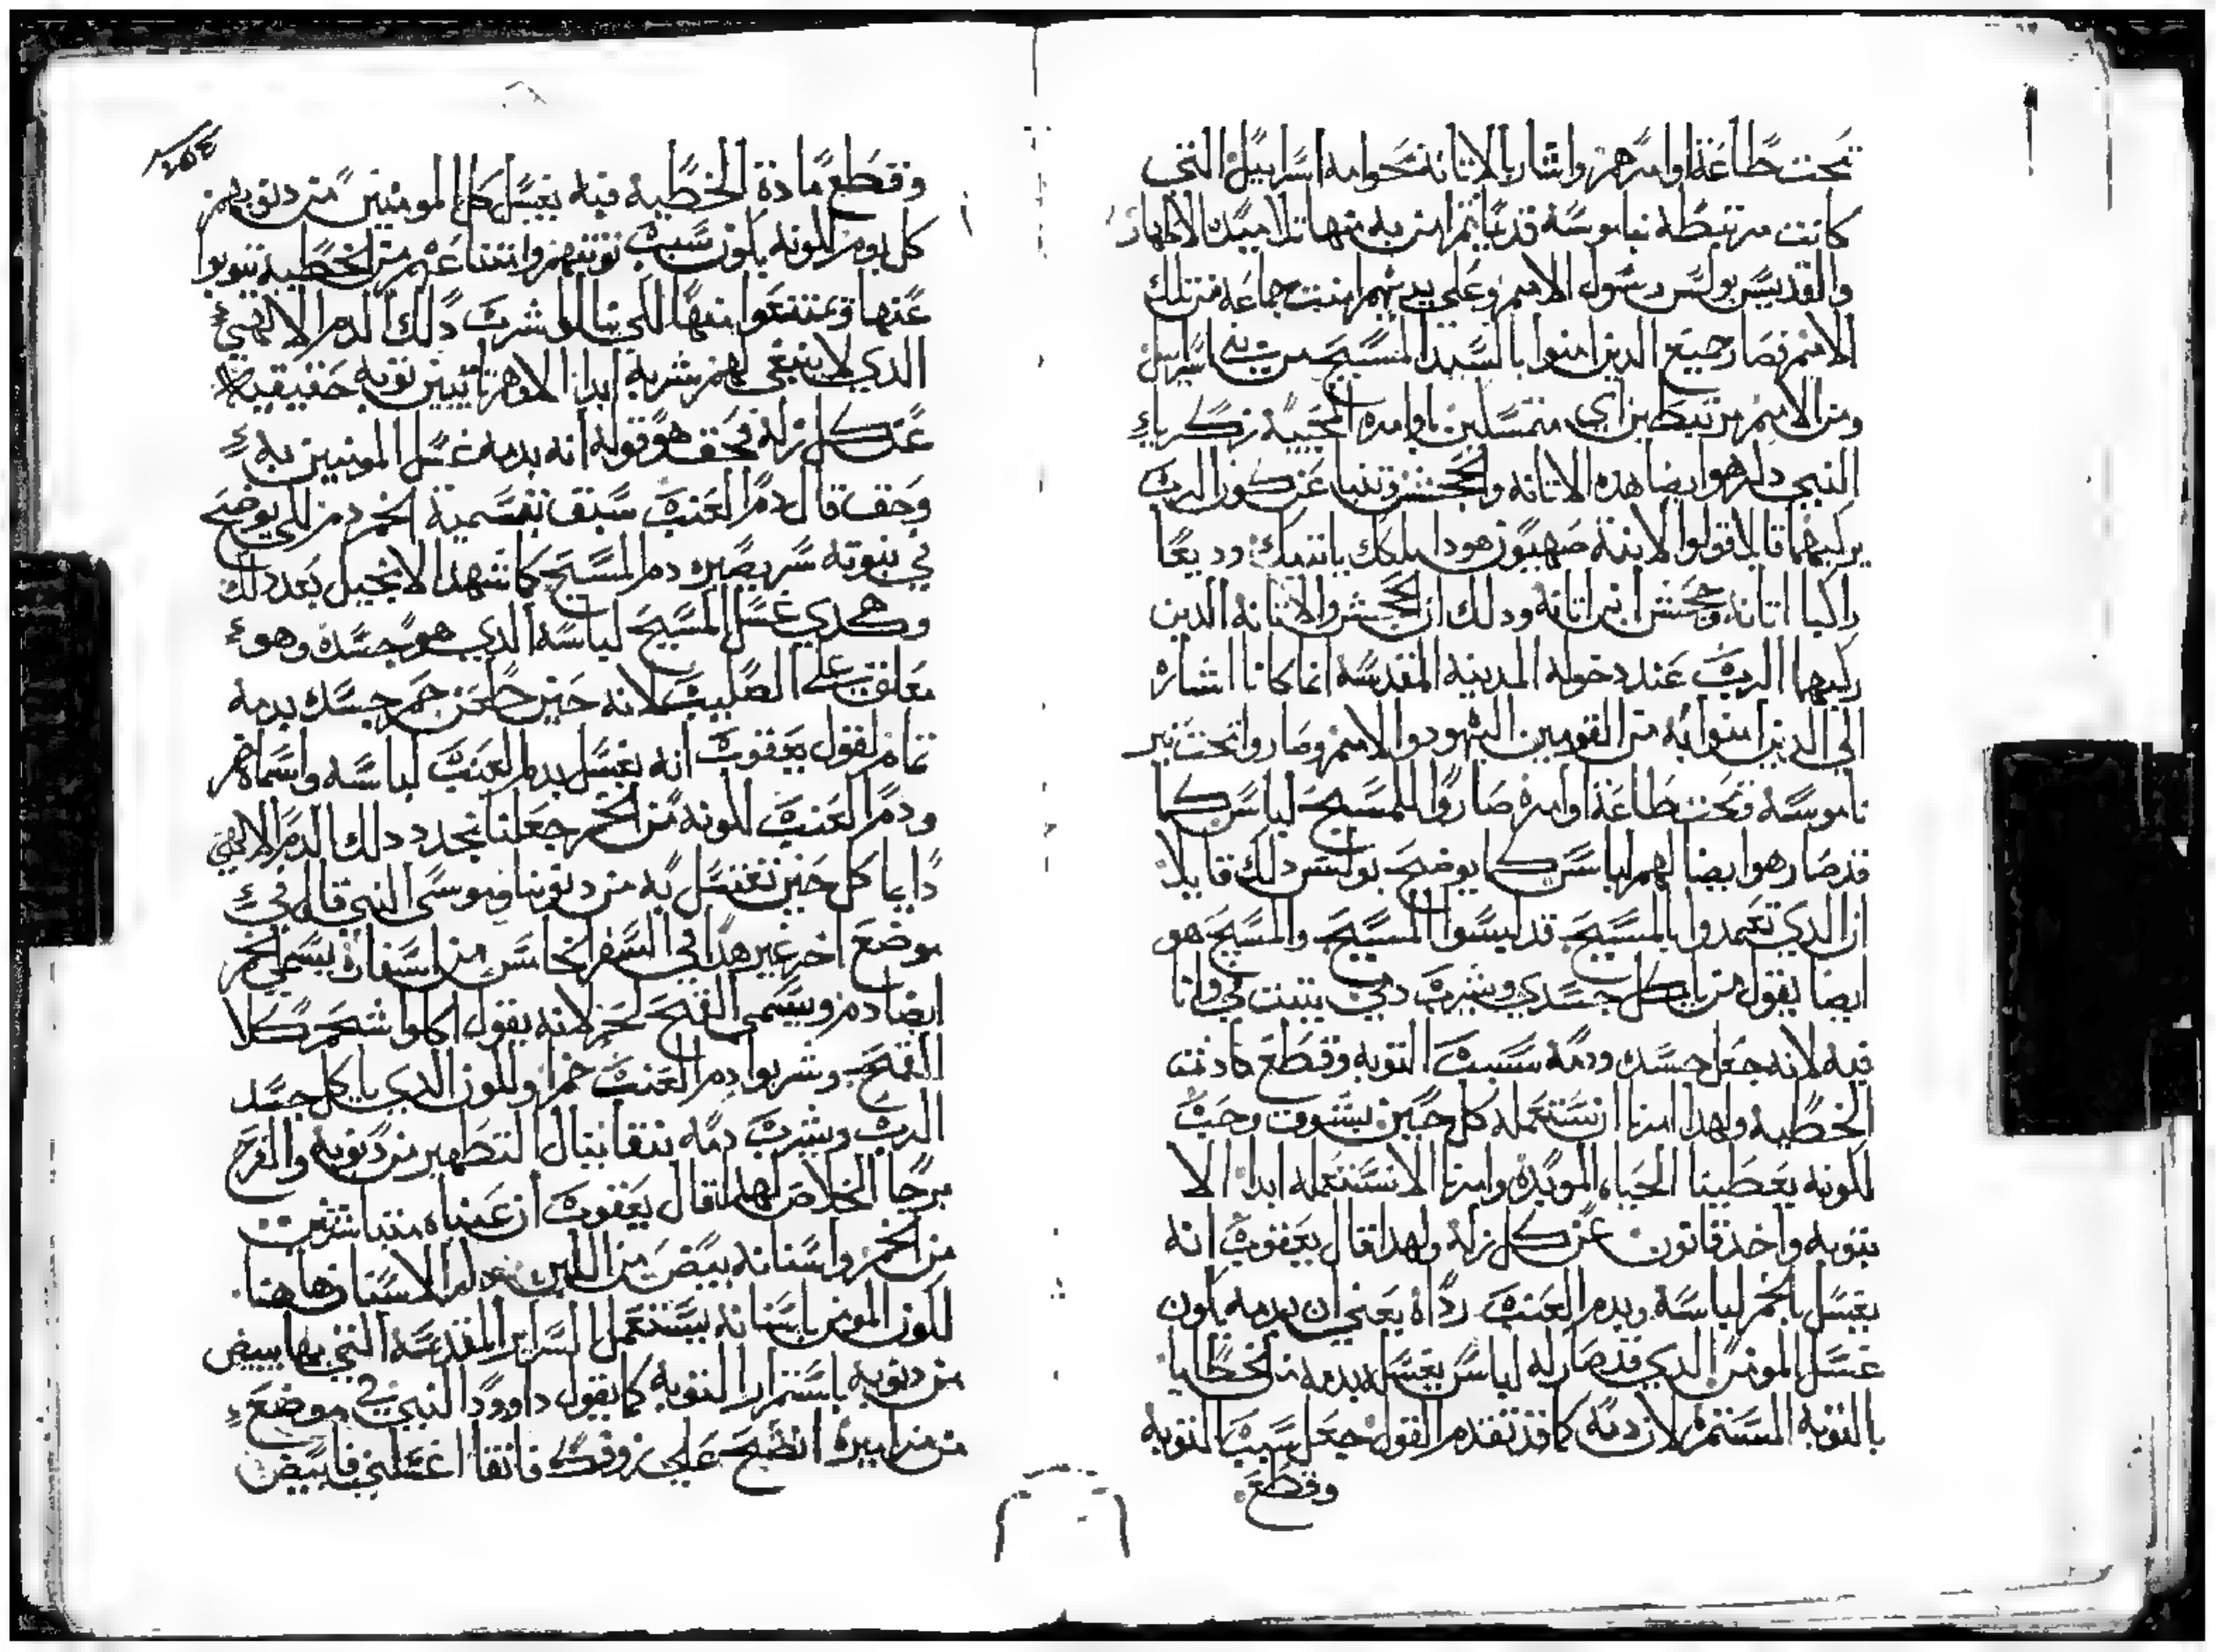 تحت طاعة اوامرهم واشار بالاتانه نحو امه اسراييل التي
كانت مرتبطه بناموسه قديما ثم امن به منها تلاميده الاطهار
والقديس بولس رسول الامم وعلي يديهم امنت جماعه من تلك
الامم فصار جميع الدين امنوا بالسيد المسيح من بني اسراييل
ومن الامم مرتبطين اي متمسكين باوامره المحييه زكرياء
النبي دكر هو ايضا هده الاتانه والجحش وتنبا عن كون الرب
يركبهما قايلا قولوا لابنة صهيون هودا ملكك ياتيك وديعا
راكبا اتانه وجحش ابن اتانه ودلك ان الجحش والاتانه الدين
ركبهما الرب عند دخوله المدينه المقدسه انما كانا اشاره
الي الدين امنوا به من القوميين اليهود والامم وصاروا تحت نير
ناموسه وتحت طاعة اوامره صاروا للمسيح لباس كما
قد صار هو ايضا لهم لباس كما يوضح بولس دلك قايلا
ان الدي تعمدوا بالمسيح قد لبسوا المسيح والمسيح هو
ايضا يقول من ياكل جسدي ويشرب دمي يتبت في وانا
فيه لانه جعل جسده ودمه سبب التوبه وقطع مادة
الخطيه ولهدا امرنا ان نستعمله كل حين بشوق وحب
لكونه يعطينا الحياه الموبده وامرنا الا نستعمله ابدا الا
بتوبه واخد قانون عن كل زله ولهدا قال يعقوب انه
يغسل بالخمر لباسه وبدم العنب رداه يعني ان بدمه يكون
غسل المومن الدي قد صار له لباس يغسله بدمه من الخطايا
بالتوبه المستمره لان دمه كما قد تقدم القول جعل سبب التوبه
وقطع
٢٥٤
وقطع مادة الخطيه فبه يغسل كل المومنين من دنوبهم
كل يوم لكونه يكون سبب توبتهم وامتناعهم من الخطيه يتوبوا
عنها ويمتنعوا منها لكي ينالوا شرب دلك الدم الالهي
الدي لا ينبغي لهم شربه ابدا الا وهم تايبين توبه حقيقيه
عن كل زله فبحق هو قوله انه بدمه غسل المومنين به
وبحق قال دم العنب سبق بتسمية الخمر دم لكي يوضح
في نبوته سر يصير دم المسيح كما شهد الانجيل بعد دلك
وهكدي غسل المسيح لباسه الدي هو جسده وهو
معلق علي الصليب لانه حين طعن خمر جسده بدمه
تمام لقول يعقوب انه يغسل بدم العنب لباسه واسماه خمر
ودم العنب لكونه من الخمر جعلنا نجدد دلك الدم الالهي
دايما كل حين نغتسل به من دنوبنا وموسي النبي قال في
موضع اخر غير هدا في السفر الخامس من اسفاره يسمي الخمر
ايضا دم ويسمي القمح لحم لانه يقول اكلوا شحم كلا
القمح وشربوا دم العنب خمرا ولكون الدي ياكل جسد
الرب ويشرب دمه بنقا ينال التطهير من دنوبه والفرح
برجا الخلاص لهدا قال يعقوب ان عيناه منتباشرين
من الخمر واسنانه بيض من اللبن الاسنان هاهنا
لكون المومن باسنانه يستعمل السراير المقدسه التي بها يبيض
من دنوبه باستمرار التوبه كما يقول داوود النبي في موضع
من مزاميره انضح علي زوفك فانقا اغسلني فابيض